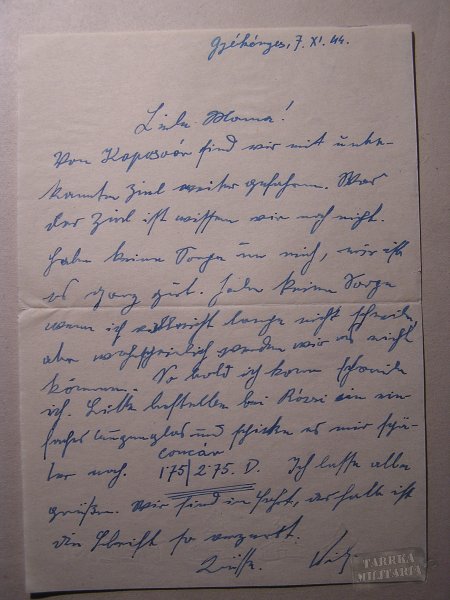 Gyékényes, 7. XI. 44.
Liebe Mama!
Von Kaposvár sind wir mit unbe-
kannten Ziel weiter gefahren. Was
der Ziel ist wissen wir noch nicht.
Habe keine Sorge um mich, mir ist
es ganz gut. Habe keine Sorge
wenn ich vielleicht lange nicht schreibe
aber wahrscheinlich werden wir es nicht
können. So bald ich kann schreibe
ich. Bitte bestellen bei Rózsi ein ein-
faches Augenglas und schicken es mir spä-
ter nach.
concav
175/2.75. D. Ich lasse alle
grüßen. Wir sind in Fahrt, deshalb ist
die Schrift so verzerrt.
Küsse.
TARRKA
MILITARIA